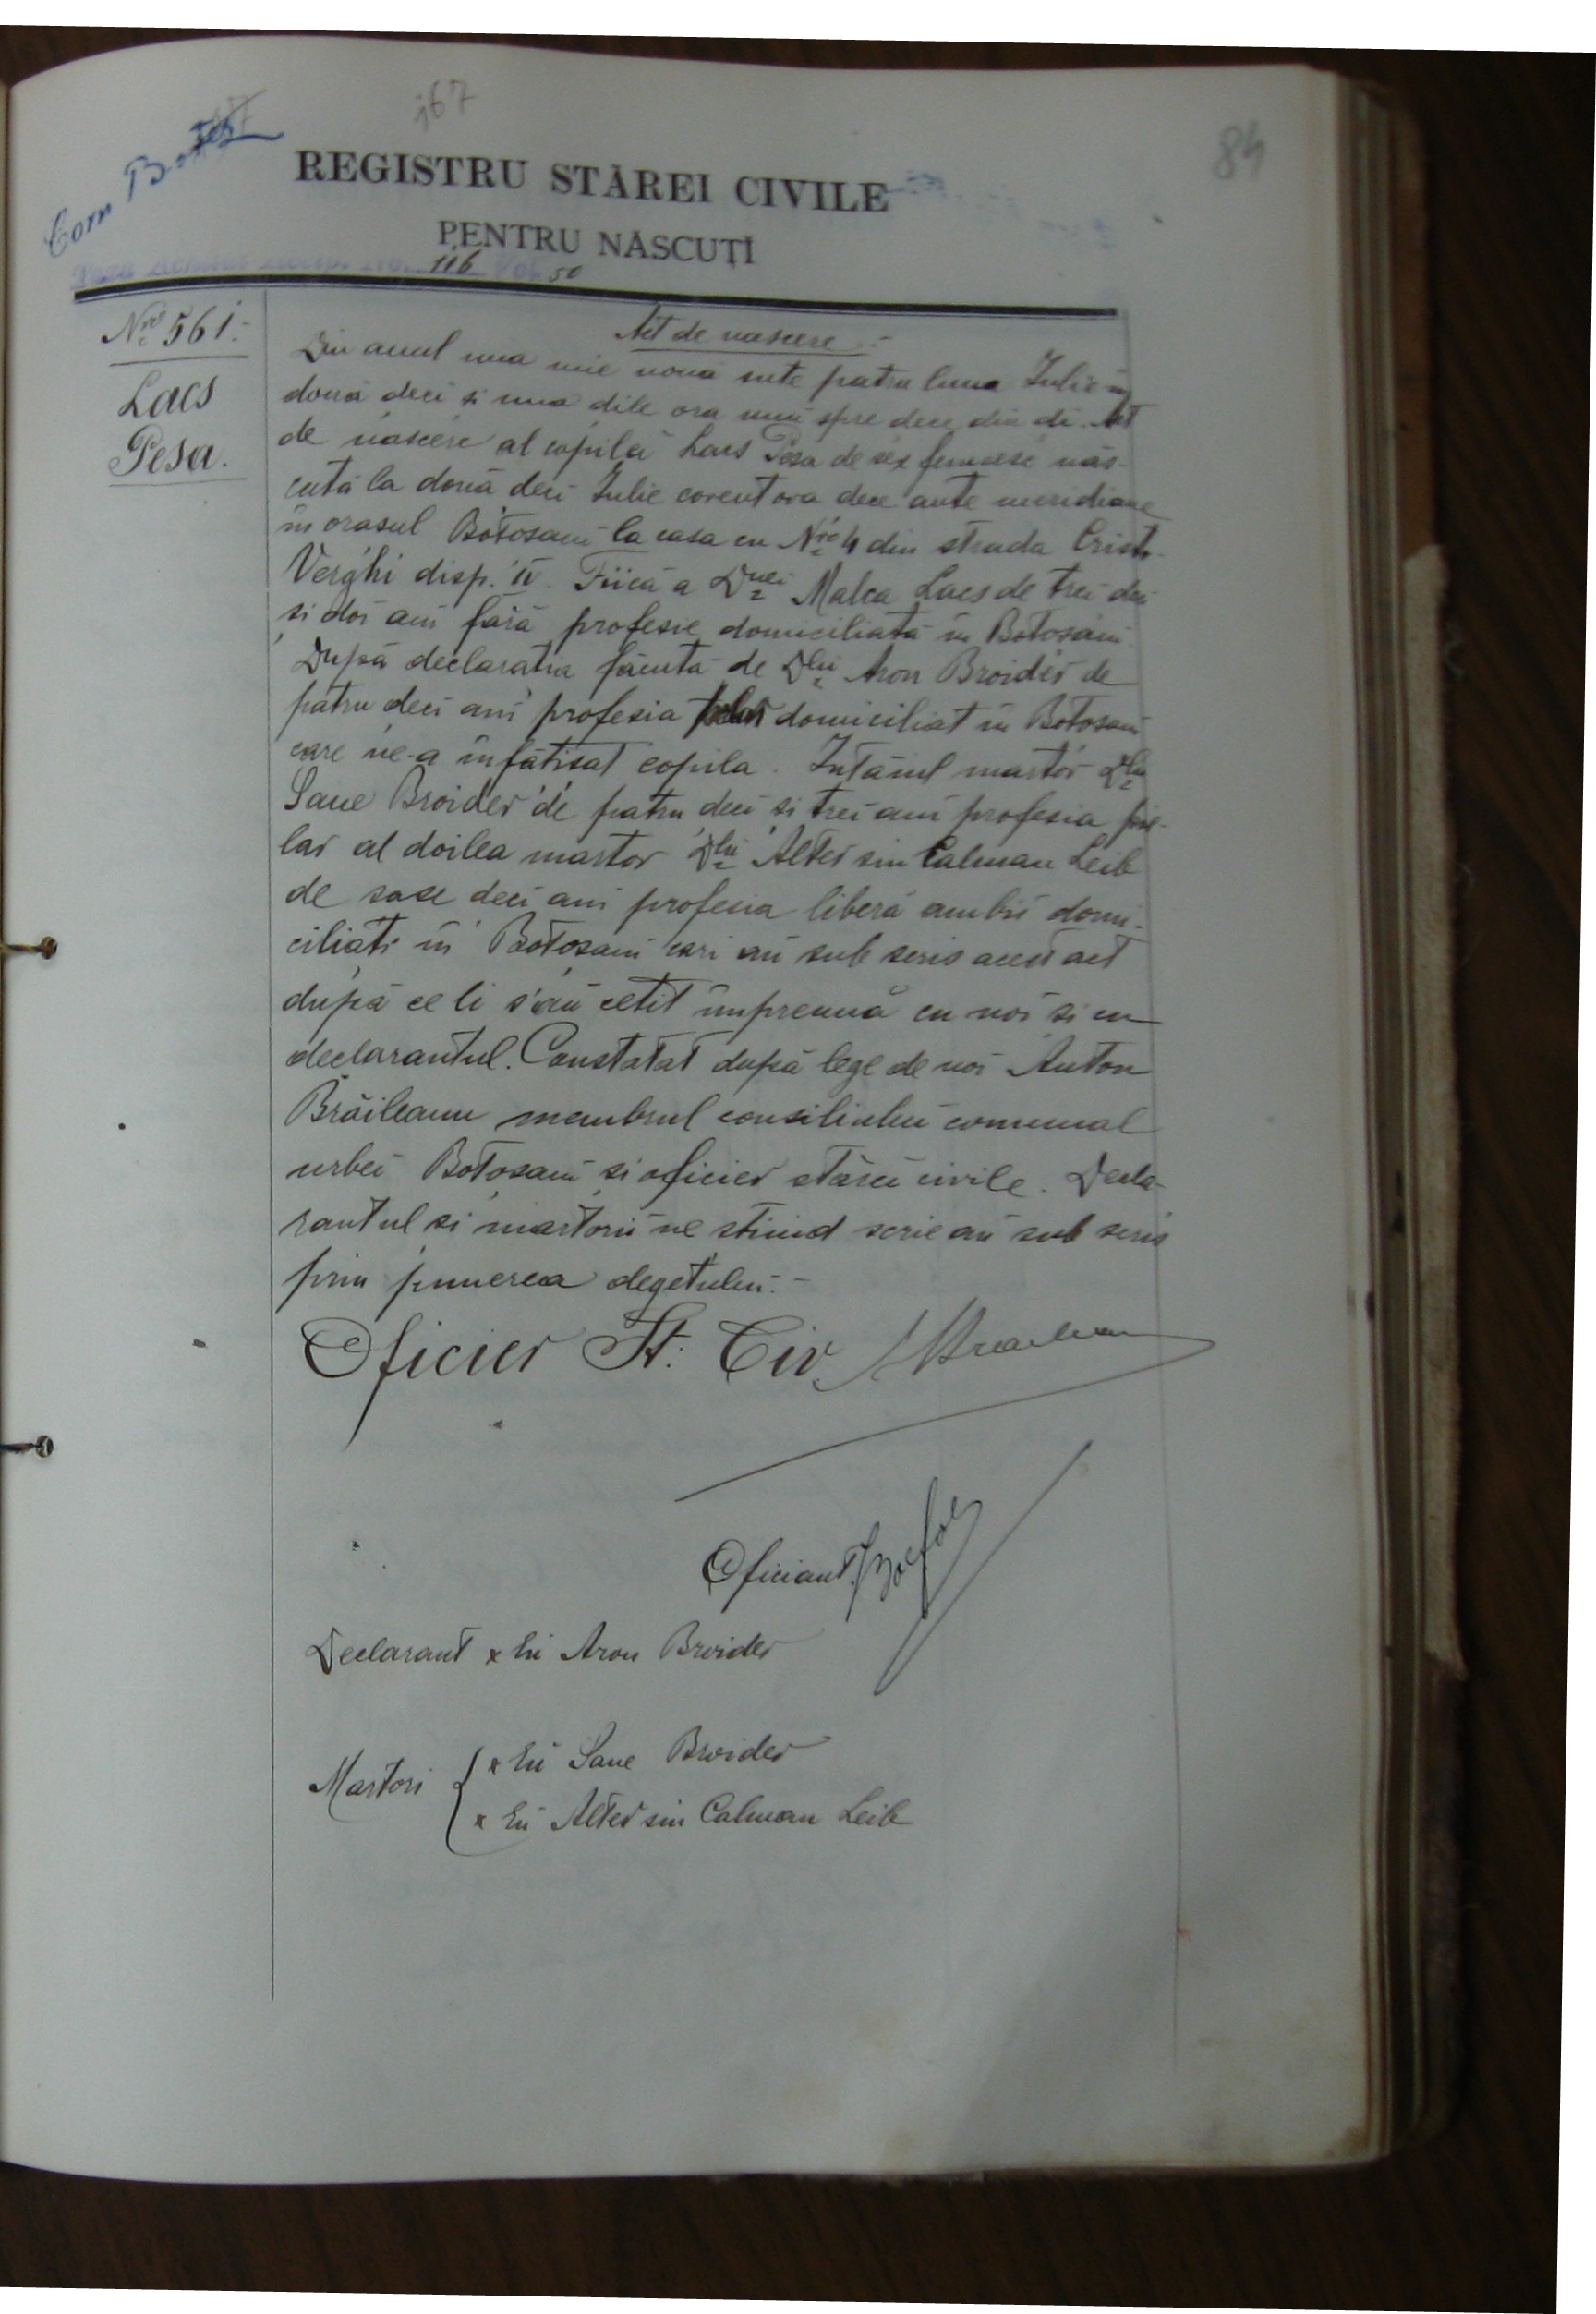 167
84
Com Botoș
REGISTRU STĂREI CIVILE
PENTRU NĂSCUȚI
116 Vol. 50
Nro 561.-
Lacs
Pesa.
Act de nascere.-
Din anul una mie nouă sute patru luna Iulie în
două deci și una dile ora unu spre dece din di. Act
de nascere al copilei Lacs Pesa de sex femeesc năs-
cută la două deci Iulie corent ora dece ante meridiane
în orasul Botosani la casa cu Nro 4 din strada Cristi-
Verghi disp. IV. Fiică a Dnei Malca Lacs de trei deci
si doi ani fără profesie domiciliată în Botosani.
După declaratia făcută de Dlui Aron Broider de
patru deci ani profesia domiciliat în Botosani
care ne-a înfătisat copila. Întâiul martor Dlui
Sane Broider de patru deci si trei ani profesia pie-
lar al doilea martor Dlui Alter sin Calman Leib
de sase deci ani profesia liberă ambii domi-
ciliati în Botosani cari au sub scris acest act
după ce li s'au cetit împreună cu noi si cu
declarantul. Constatat după lege de noi Anton
Brăileanu membrul consiliului comunal
urbei Botosani si oficier stărei civile. Decla-
rantul si martorii ne stiind scrie au sub scris
prin punerea degetului.-
Oficier St. Civ. ABraileanu
Oficiant
Declarant x Eu Aron Broider
Martori { x Eu Sane Broider
x Eu Alter sin Calman Leib